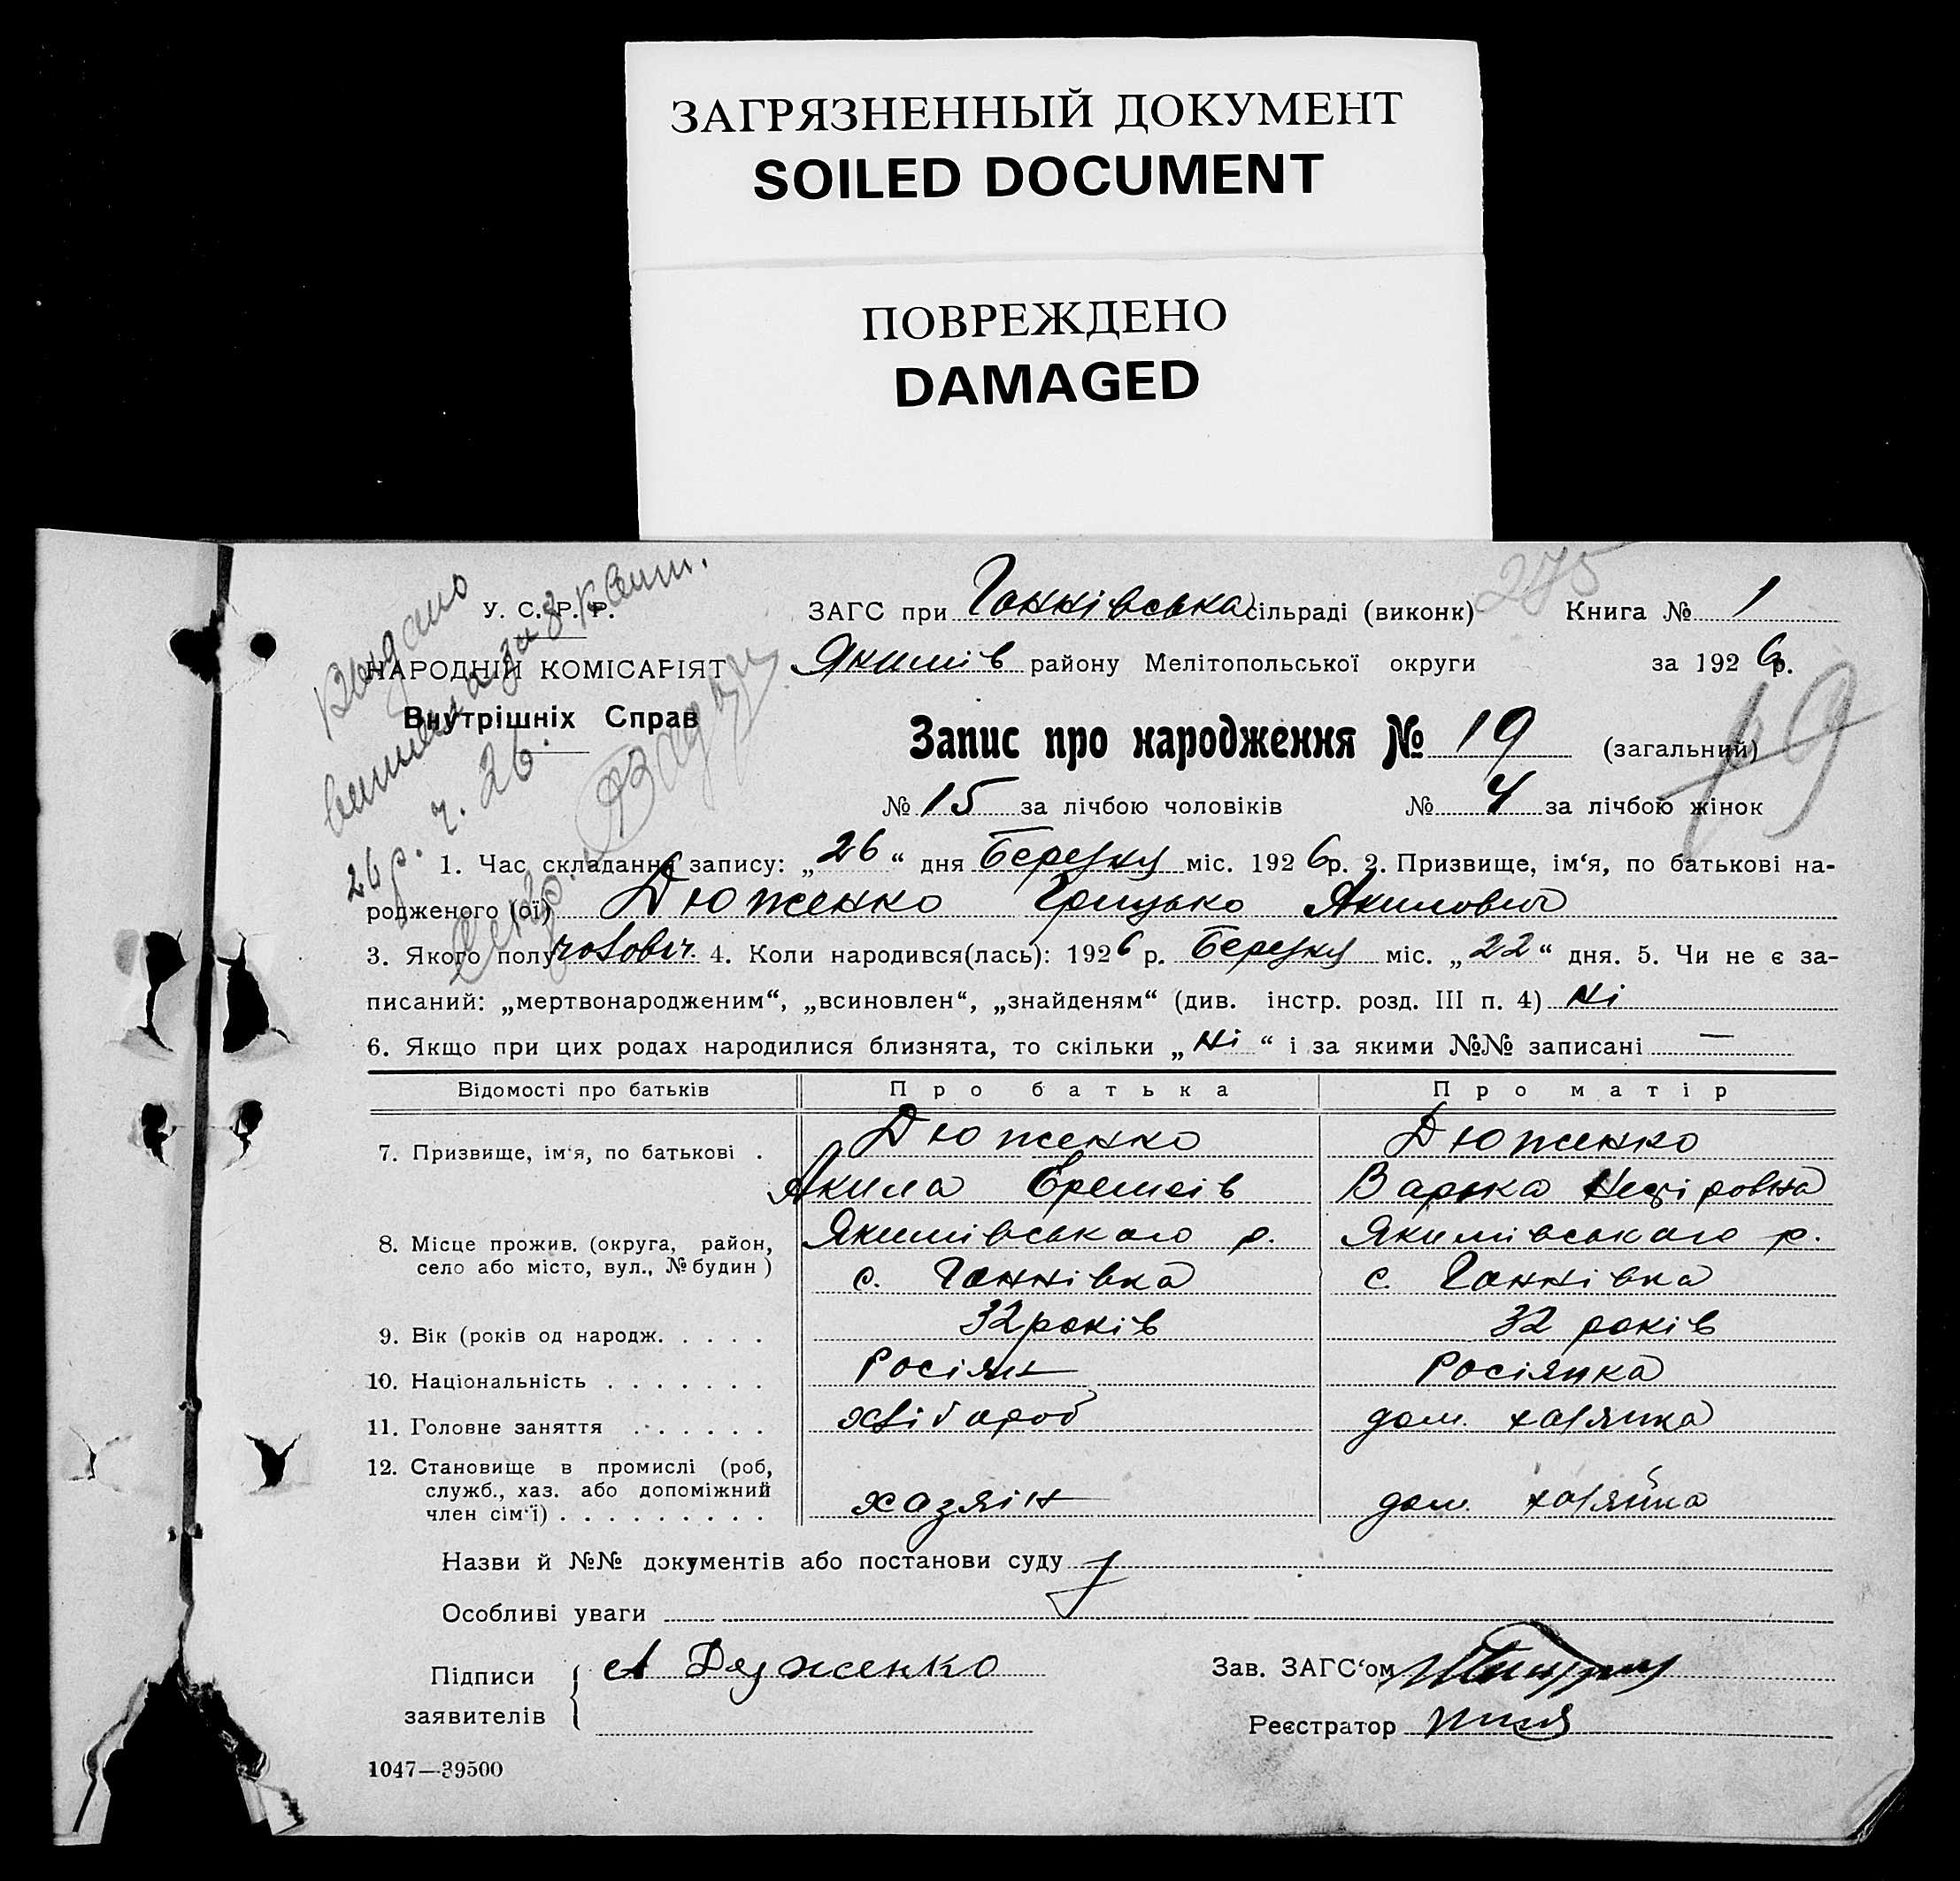 ЗАГРЯЗНЕННЫЙ ДОКУМЕНТ
SOILED DOCUMENT
ПОВРЕЖДЕНО
DAMAGED
275
У. С. Р. Р.
НАРОДНІЙ КОМІСАРІЯТ
Внутрішніх Справ
Видано
26 р.
ЗАГС при Ганнівська сільраді (виконк) Книга № 1
Якимів району Мелітопольської округи за 1926 р.
Запис про народження № 19 (загальний)
19
№ 15 за лічбою чоловіків № 4 за лічбою жінок
1. Час складання запису: „26“ дня Березня міс. 1926 р. 2. Призвище, ім‘я, по батькові на-
родженого (ої) Дюженко Грицько Якимович
3. Якого полу чолович. 4. Коли народився(лась): 1926 р. Березня міс. „22“ дня. 5. Чи не є за-
писаний: „мертвонародженим“, „всиновлен“, „знайденям“ (див. інстр. розд. III п. 4) ні
6. Якщо при цих родах народилися близнята, то скільки „ні“ і за якими №№ записані —
Відомості про батьків Про батька Про матір
7. Призвище, ім‘я, по батькові . Дюженко Дюженко
Акима Єремеів Варька
8. Місце прожив. (округа, район, Якимівського р. Якимівського р.
село або місто, вул., № будин) с. Ганнівка с. Ганнівка
9. Вік (років од народж. . . . . 32 років 32 років
10. Національність . . . . . . . Росіян Росіянка
11. Головне заняття . . . . . . хлібороб дом. хазяйка
12. Становище в промислі (роб,
служб., хаз. або допоміжний
член сім‘ї) . . . . . . . . . хазяін дом. хазяйка
Назви й №№ документів або постанови суду
Особливі уваги
Підписи А Дюженко Зав. ЗАГС‘ом
заявителів Реєстратор
1047—39500